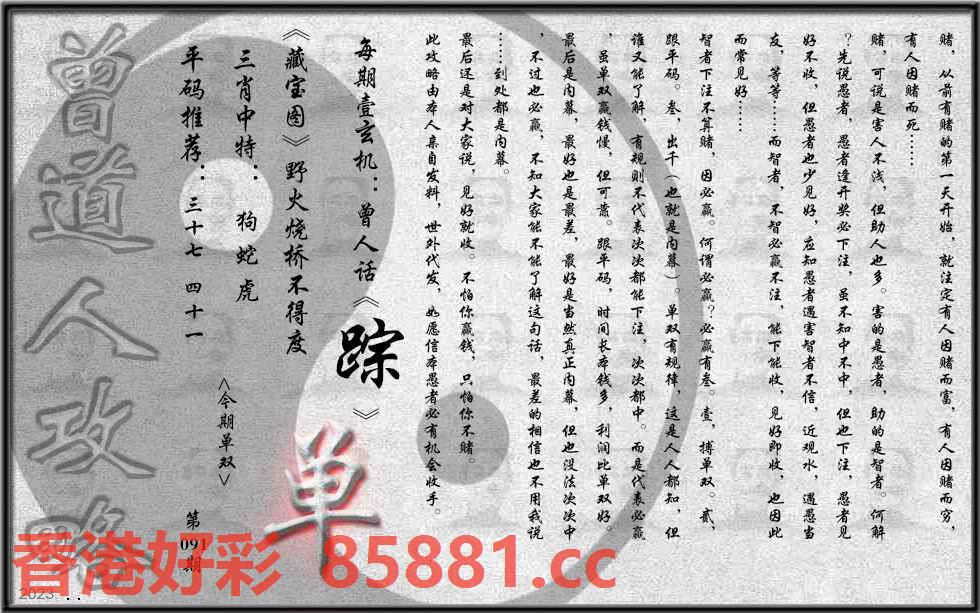 赌，从前有赌的第一天开始，就注定有人因赌而富，有人因赌而穷，
有人因赌而死……
赌，可说是害人不浅，但助人也多。害的是愚者，助的是智者。何解
？先说愚者，愚者逢开奖必下注，虽不知中不中，但也下注，愚者见
好不收，但愚者也少见好，应知愚者遇害智者不信，近观水，遇愚当
友，等等……而智者，不智必赢不注，能下能收，见好即收，也因此
而常见好……
智者下注不算赌，因必赢。何谓必赢？必赢有叁。壹，搏单双。贰，
跟平码。叁，出千（也就是内幕）。单双有规律，这是人人都知，但
谁又能了解，有规则不代表次次都能下注，次次都中。而是代表必赢
，虽单双赢钱慢，但可靠。跟平码，时间长本钱多，利润比单双好。
最后是内幕，最好也是最差，最好是当然真正内幕，但也没法次次中
，不过也必赢，不知大家能不能了解这句话，最差的相信也不用我说
……到处都是内幕。
最后还是对大家说，见好就收。不怕你赢钱，只怕你不赌。
此攻略由本人亲自发料，世外代发，如愿信本愚者必有机会收手。
每期壹玄机：曾人话《踪》
《藏宝图》野火烧桥不得度
三肖中特：狗蛇虎
平码推荐：三十七 四十一
<今期单双>
单
第
091
期
曾道人攻略
香港好彩 85881.cc
2023